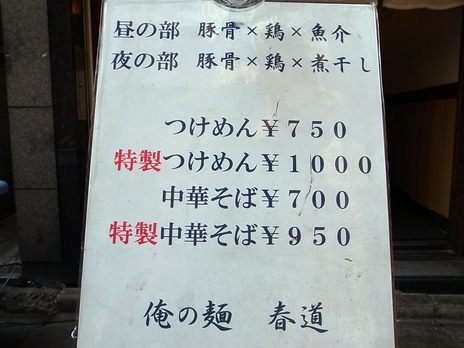 昼の部 豚骨×鶏×魚介
夜の部 豚骨×鶏×煮干し
つけめん￥７５０
特製つけめん￥１０００
中華そば￥７００
特製中華そば￥９５０
俺の麺 春道